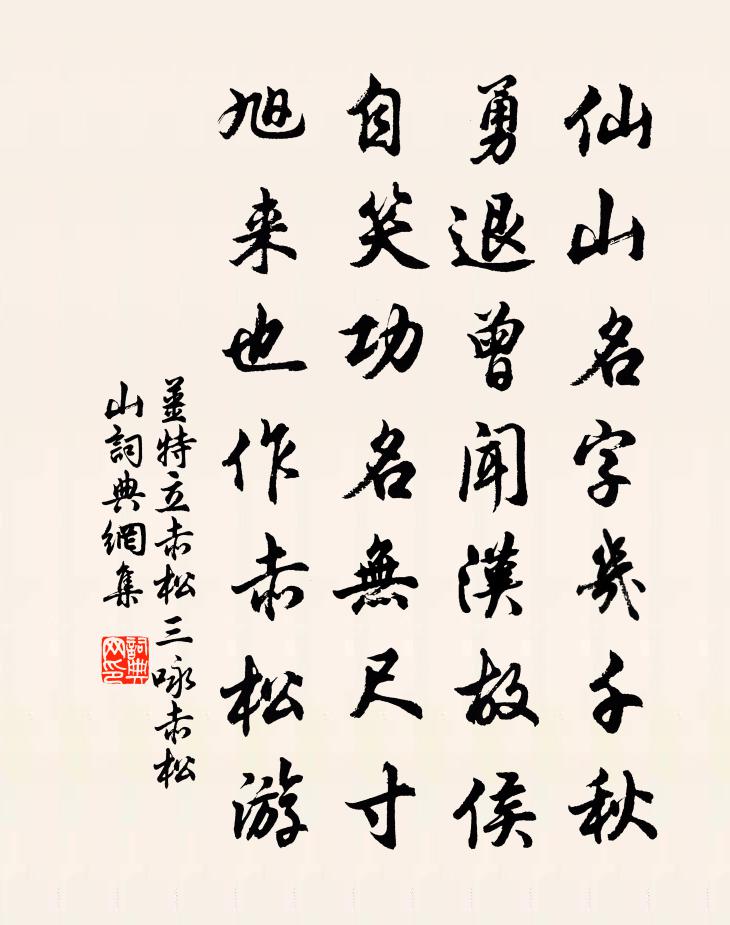 仙山名字幾千秋
勇退曾聞漢故侯
自笑功名無尺寸
旭来也作赤松游
薑特立赤松三咏赤松
山詞典網集
詞典
网印